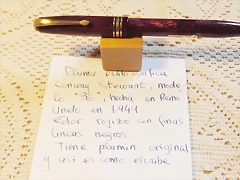 Pluma estilográfica
Conway Stewart, mode
lo 36, hecha en Reino
Unido en 1949
Color rojizo con finas
líneas negras
Tiene plumin original
y así es como escribe